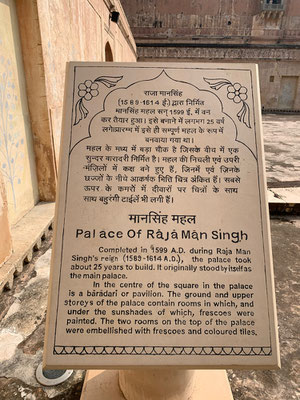 राजा मानसिंह
(1589-1614 ई.) द्वारा निर्मित
मानसिंह महल सन् 1599 ई. में बन
कर तैयार हुआ। इसे बनाने में लगभग 25 वर्ष
लगे। प्रारम्भ में इसे ही सम्पूर्ण महल के रूप में
बनवाया गया था।
महल के मध्य में बड़ा चौक है जिसके बीच में एक
सुन्दर बारादरी निर्मित है। महल की निचली एवं उपरी
मंजिलों में कक्ष बने हुए हैं, जिनमें एवं जिनके
छज्जों के नीचे आकर्षक भित्ति चित्र अंकित हैं। सबसे
ऊपर के कमरों में दीवारों पर चित्रों के साथ
साथ बहुरंगी टाईलें भी लगी हैं।
मानसिंह महल
Palace Of Rājā Mān Singh
Completed in 1599 A.D. during Raja Man
Singh's reign (1589-1614 A.D.), the palace took
about 25 years to build. It originally stood by itself as
the main palace.
In the centre of the square in the palace
is a bārādari or pavilion. The ground and upper
storeys of the palace contain rooms in which, and
under the sunshades of which, frescoes were
painted. The two rooms on the top of the palace
were embellished with frescoes and coloured tiles.